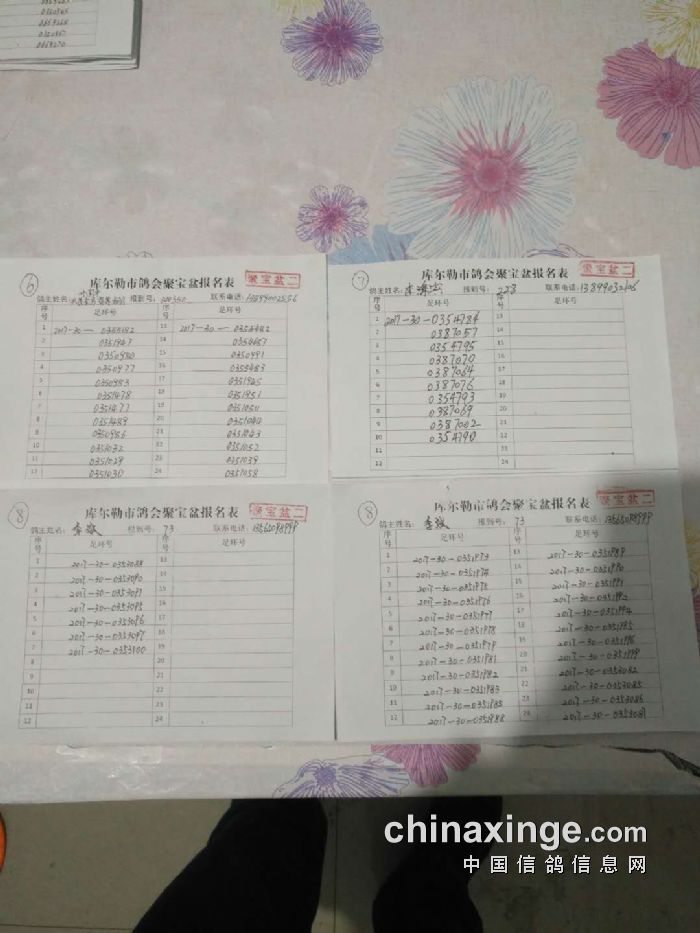 0350965
0353268
0350967
0353270
⑥
库尔勒市鸽会聚宝盆报名表
聚宝盆二
鸽主姓名: 棚号: 联系电话:13899002556
序号 足环号 序号 足环号
1 2017-30-0355182 13 2017-30-0354482
2 0351967 14
3 0350980 15 0350991
4 0350977 16 0355483
5 0350983 17 0351965
6 0351478 18 0351951
7 0351477 19 0351050
8 0351489 20 0351044
9 0350956 21 0351043
10 0351032 22 0351052
11 0351029 23 0351039
12 0351030 24 0351058
⑦
库尔勒市鸽会聚宝盆报名表
聚宝盆二
鸽主姓名: 棚号: 223 联系电话:13899032105
序号 足环号 序号 足环号
1 2017-30-0354784 13
2 0387057 14
3 0354795 15
4 0387070 16
5 0387064 17
6 0387076 18
7 0354793 19
8 0387069 20
9 0387002 21
10 0354790 22
11 23
12 24
⑧
库尔勒市鸽会聚宝盆报名表
聚宝盆二
鸽主姓名: 李敏 棚号: 73 联系电话:13565098999
序号 足环号 序号 足环号
1 2017-30-0353088 13
2 2017-30-0353090 14
3 2017-30-0353091 15
4 2017-30-0353095 16
5 2017-30-0353096 17
6 2017-30-0353097 18
7 2017-30-0353100 19
8 20
9 21
10 22
11 23
12 24
⑧
库尔勒市鸽会聚宝盆报名表
聚宝盆二
鸽主姓名: 李敏 棚号: 73 联系电话:13565098999
序号 足环号 序号 足环号
1 2017-30-0351973 13 2017-30-0351989
2 2017-30-0351974 14 2017-30-0351990
3 2017-30-0351975 15 2017-30-0351991
4 2017-30-0351976 16 2017-30-0351992
5 2017-30-0351977 17 2017-30-0351994
6 2017-30-0351978 18 2017-30-0351995
7 2017-30-0351979 19 2017-30-0351996
8 2017-30-0351981 20 2017-30-0351999
9 2017-30-0351982 21 2017-30-0353082
10 2017-30-0351983 22 2017-30-0353085
11 2017-30-0351985 23 2017-30-0353086
12 2017-30-0351988 24 2017-30-0353087
chinaxinge.com
中国信鸽信息网